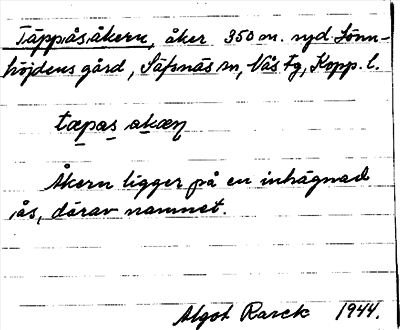 Täppåsåkern, åker 350 m. syd Lönn-
höjdens gård, Säfsnäs sn, Väs fg, Kopp. l.
tæpas akæɳ
Åkern ligger på en inhägnad
ås, därav namnet.
Algot Rasck 1944.